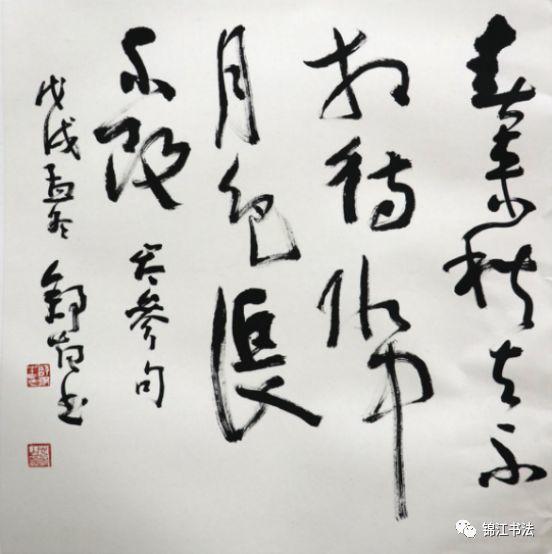 春來秋去不
相待水中
月色長
不改 岑參句
戊戌孟冬 舒 书
锦江书法